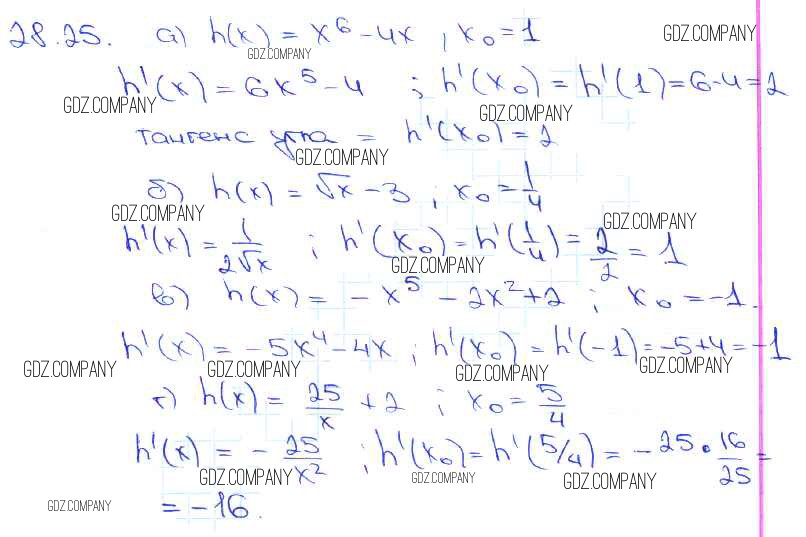 28.25. а) h(x) = x⁶ – 4x , x₀ = 1 GDZ.COMPANY
GDZ.COMPANY
h'(x) = 6x⁵ – 4 ; h'(x₀) = h'(1) = 6 – 4 = 2
GDZ.COMPANY GDZ.COMPANY
тангенс угла = h'(x₀) = 2
GDZ.COMPANY
б) h(x) = √x – 3 ; x₀ = 1/4
GDZ.COMPANY GDZ.COMPANY
h'(x) = 1/(2√x) ; h'(x₀) = h'(1/4) = 2/2 = 1
GDZ.COMPANY
в) h(x) = – x⁵ – 2x² + 2 ; x₀ = –1.
h'(x) = –5x⁴ – 4x ; h'(x₀) = h'(–1) = –5 + 4 = –1
GDZ.COMPANY GDZ.COMPANY GDZ.COMPANY GDZ.COMPANY
г) h(x) = 25/x + 2 ; x₀ = 5/4
h'(x) = – 25/x² ; h'(x₀) = h'(5/4) = – 25 · 16/25 =
GDZ.COMPANY GDZ.COMPANY GDZ.COMPANY
GDZ.COMPANY = –16.